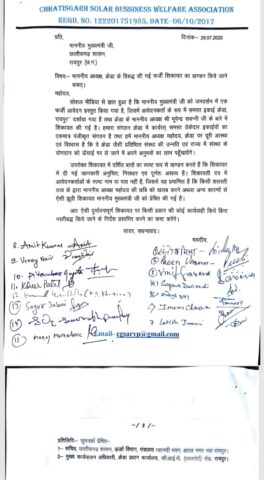 CHHATISGARH SOLAR BUSSINESS WELFARE ASSOCIATION
REGD. NO. 122201751985, DATE-06/10/2017
प्रति,
दिनांक- 29.07.2025
माननीय मुख्यमंत्री जी,
छत्तीसगढ़ शासन,
रायपुर (छ.ग.)
विषय:- माननीय अध्यक्ष, क्रेडा के विरुद्ध की गई फर्जी शिकायत का खण्डन किये जाने
बाबत्।
महोदय,
सोशल मीडिया से ज्ञात हुआ है कि माननीय मुख्यमंत्री जी को जनदर्शन में
एक फर्जी आवेदन प्रस्तुत किया गया है, जिसमें आवेदनकर्ता के रूप में समस्त इकाई क्रेडा,
रायपुर दर्शाया गया है तथा क्रेडा के अध्यक्ष श्री भूपेन्द्र सवन्नी जी के बारे में
शिकायत की गई है। हमारा संगठन क्रेडा में कार्यरत समस्त ठेकेदार इकाईयों का
एकमात्र पंजीकृत संगठन है तथा हमें माननीय अध्यक्ष महोदय, क्रेडा पर पूरी आस्था
एवं विश्वास है कि वे क्रेडा जैसी प्रतिष्ठित संस्था की उन्नति एवं राज्य में संस्था के
योगदान को ऊँचाई पर ले जाने में अपने अनुभवों का लाभ पहुँचायेंगे।
उपरोक्त शिकायत में दर्शित बातों का स्पष्ट रूप से खण्डन करते हैं कि शिकायत
में दी गई जानकारी अनुचित, निराधार एवं पूर्णतः असत्य है। शिकायती पत्र में
आवेदनकर्ताओं के स्पष्ट नाम का पता नहीं है, जिससे यह प्रमाणित है कि किसी शरारती
तत्व के द्वारा माननीय अध्यक्ष महोदय की छवि को खराब करने अथवा अन्य कारणों से
ऐसी झूठी शिकायत माननीय मुख्यमंत्री जी को प्रेषित की गई है।
अतः ऐसी दुर्भावनापूर्ण शिकायत पर किसी प्रकार की कोई कार्यवाही किये बिना
नस्तीबद्ध किये जाने के निर्देश प्रसारित करने का कष्ट करेंगे।
सादर, धन्यवाद।
भवदीय,
8. Amit Kumar
9. Vinay Nair
2) PREETI
3) Vinit
10. Pitambar Gupta
4) Sapna
11. Kharak Patel
12.
6 Imran
13 Sagar
14
7
15
Email- cgsaryp@gmail.com
-/ 2 / -
प्रतिलिपि:- सूचनार्थ प्रेषित।
1- सचिव, छत्तीसगढ़ शासन, ऊर्जा विभाग, मंत्रालय महानदी भवन, अटल नगर नवा रायपुर।
2- मुख्य कार्यपालन अधिकारी, क्रेडा प्रधान कार्यालय, व्ही.आई.पी. (एयरपोर्ट) रोड, रायपुर।